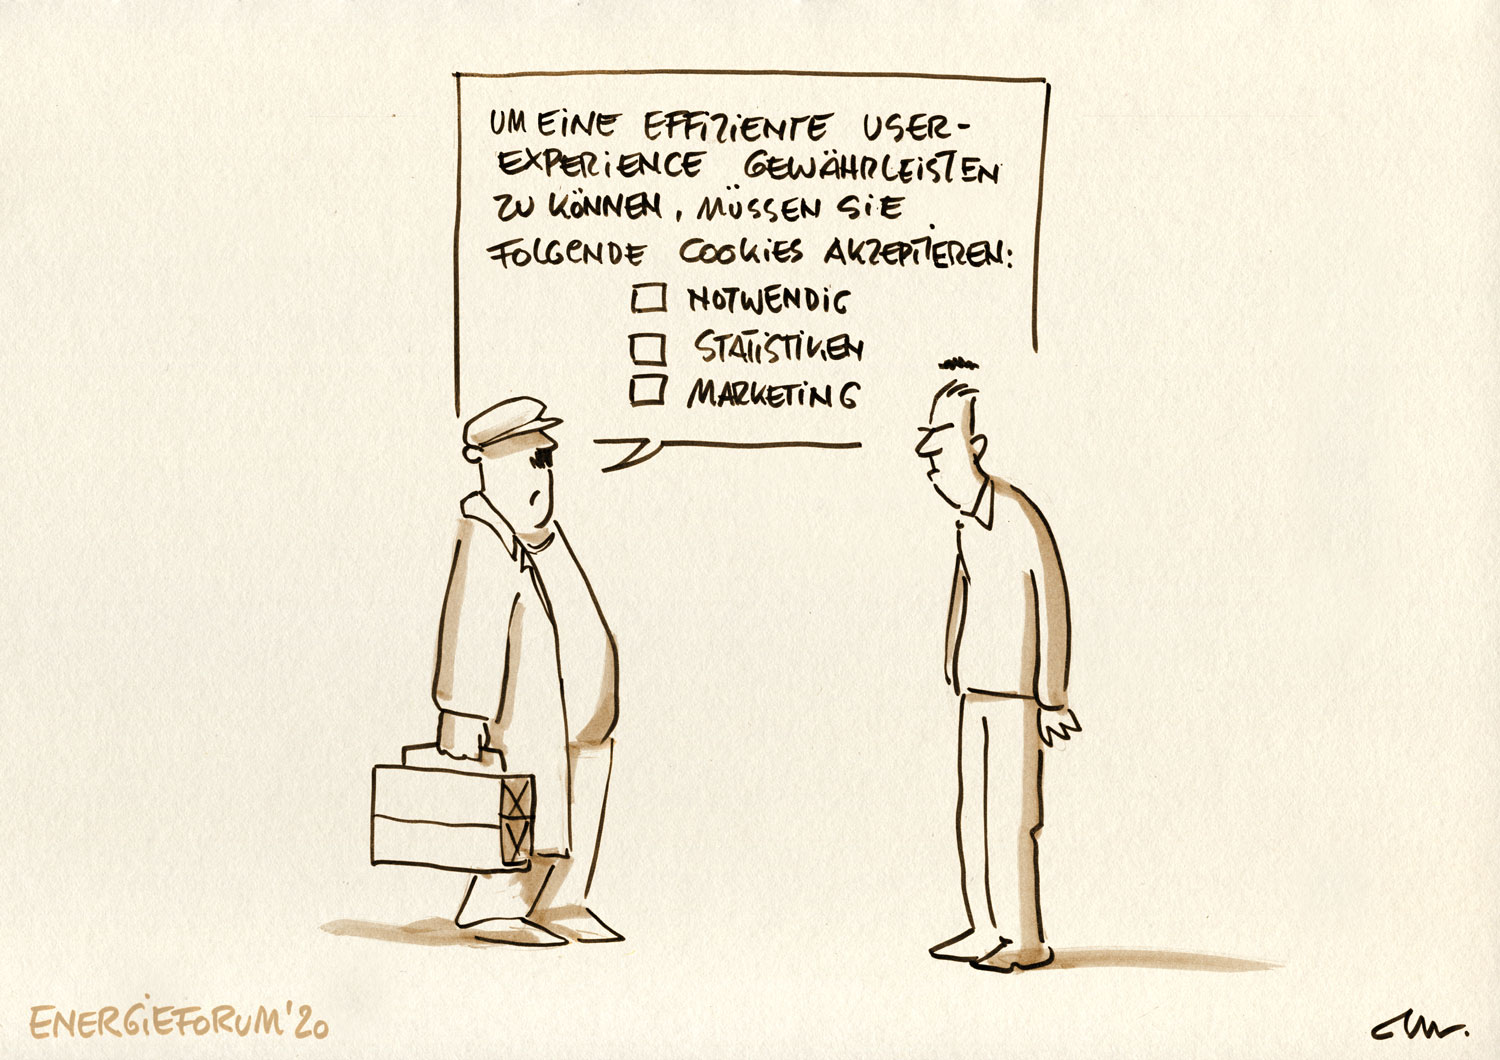 UM EINE EFFIZIENTE USER-
EXPERIENCE GEWÄHRLEISTEN
ZU KÖNNEN, MÜSSEN SIE
FOLGENDE COOKIES AKZEPTIEREN:
NOTWENDIG
STATISTIKEN
MARKETING
ENERGIEFORUM'20